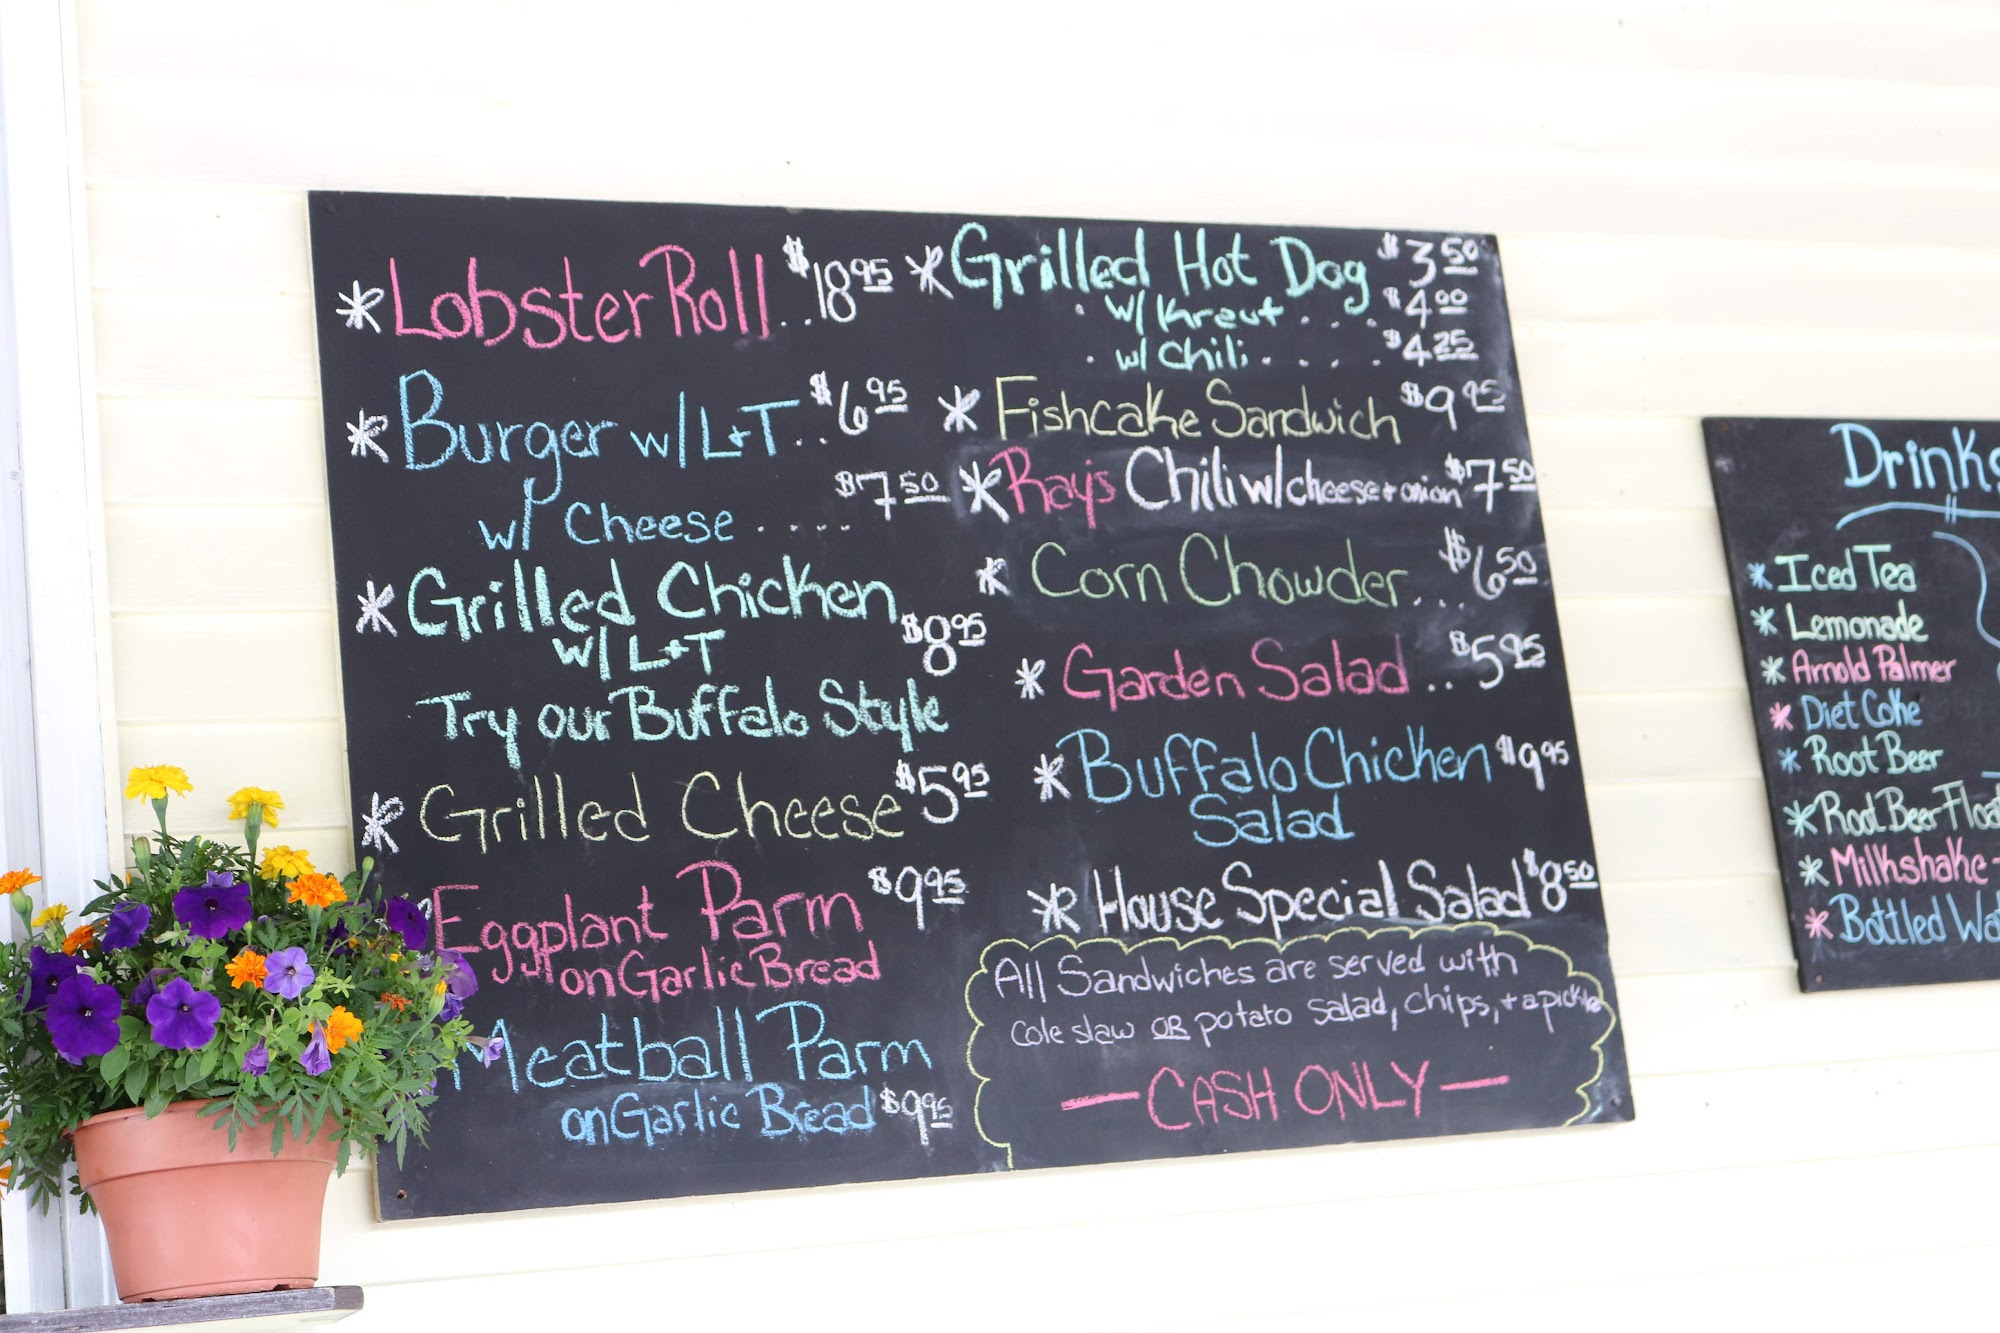 * Lobster Roll .. $18.95
* Burger w/ L+T .. $6.95
w/ Cheese .... $7.50
* Grilled Chicken
w/ L+T $8.95
Try our Buffalo Style
* Grilled Cheese $5.95
Eggplant Parm $9.95
on Garlic Bread
Meatball Parm
on Garlic Bread $9.95
* Grilled Hot Dog $3.50
. w/ Kraut .... $4.00
. w/ Chili .... $4.25
* Fishcake Sandwich $9.95
* Ray's Chili w/ cheese + onion $7.50
* Corn Chowder... $6.50
* Garden Salad .. $5.95
* Buffalo Chicken $9.95
Salad
* House Special Salad $8.50
All Sandwiches are served with
Cole slaw OR potato salad, chips, + a pickle
— CASH ONLY —
Drinks
* Iced Tea
* Lemonade
* Arnold Palmer
* Diet Coke
* Root Beer
* Root Beer Float
* Milkshake -
* Bottled Wat